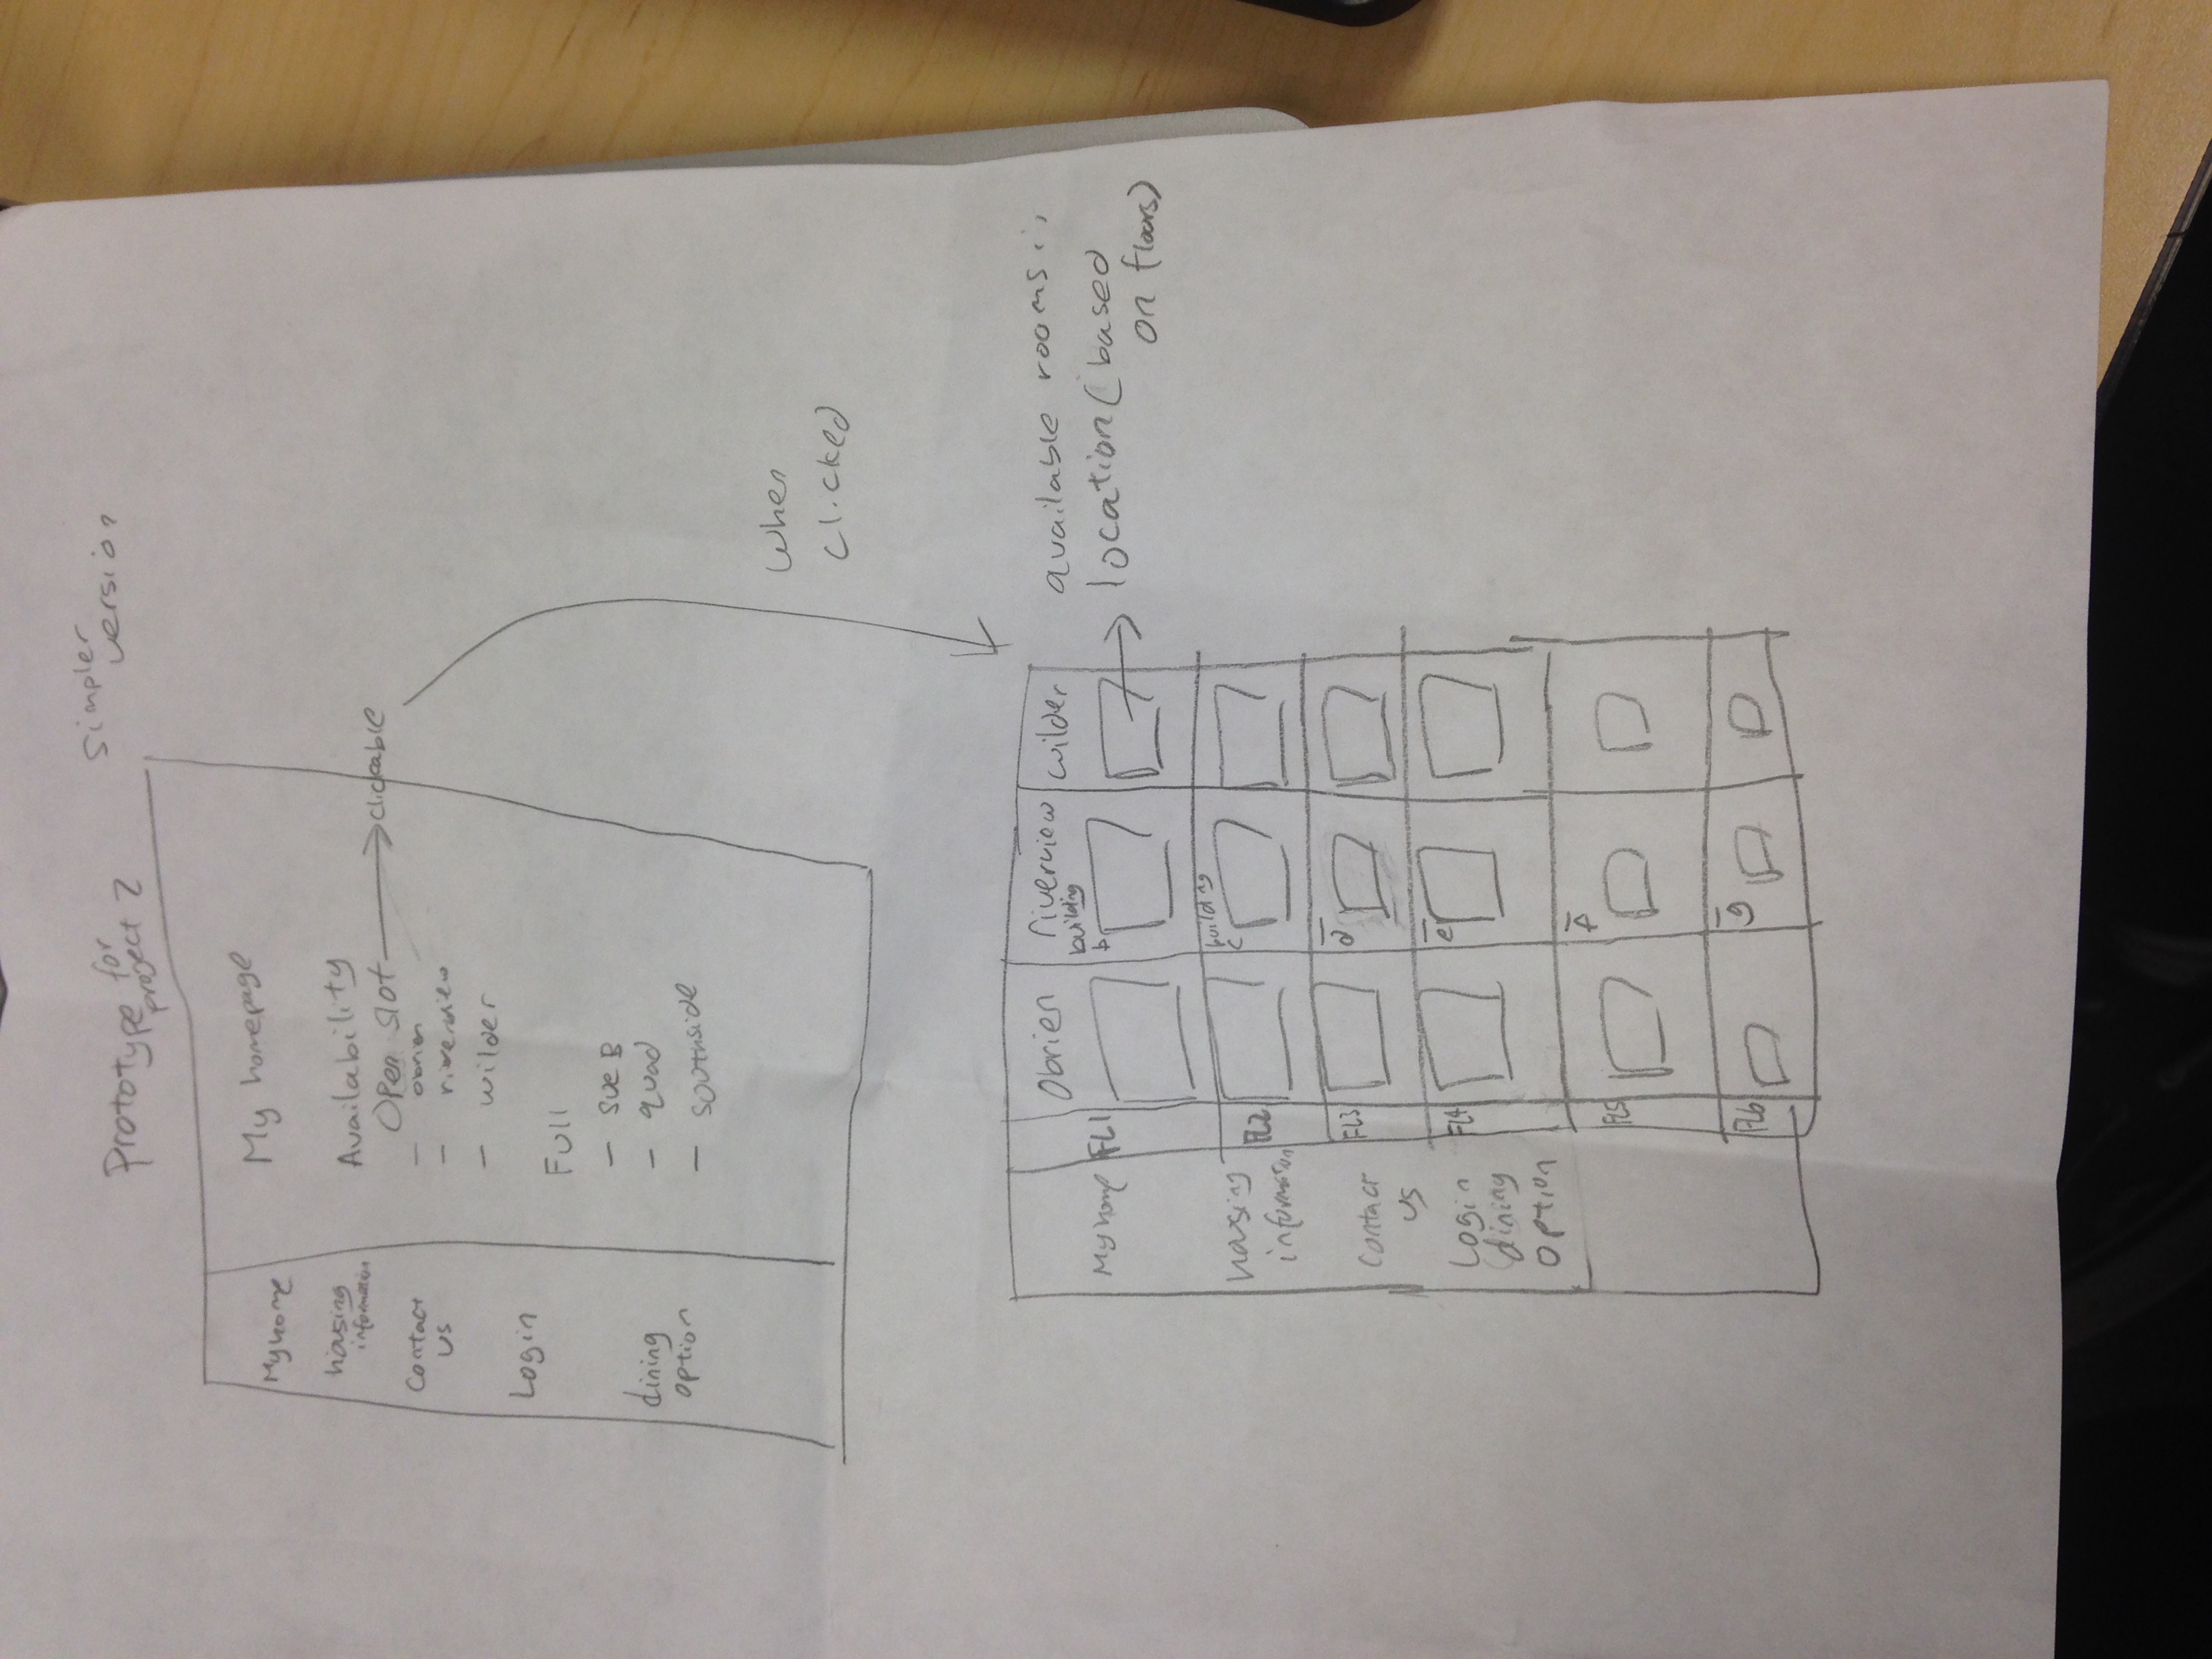 Prototype for
project 2
Simpler
version
My home
housing
information
Contact
us
Login
dining
option
My homepage
Availability
Open slot
clickable
- obrien
- riverview
- wilder
Full
- sue B
- quad
- southside
when
clicked
My home
housing
information
Contact
us
Login
dining
option
Obrien
riverview
wilder
FL1
building
b
FL2
building
c
FL3
d
FL4
e
FL5
f
FL6
g
available rooms
location (based
on floors)